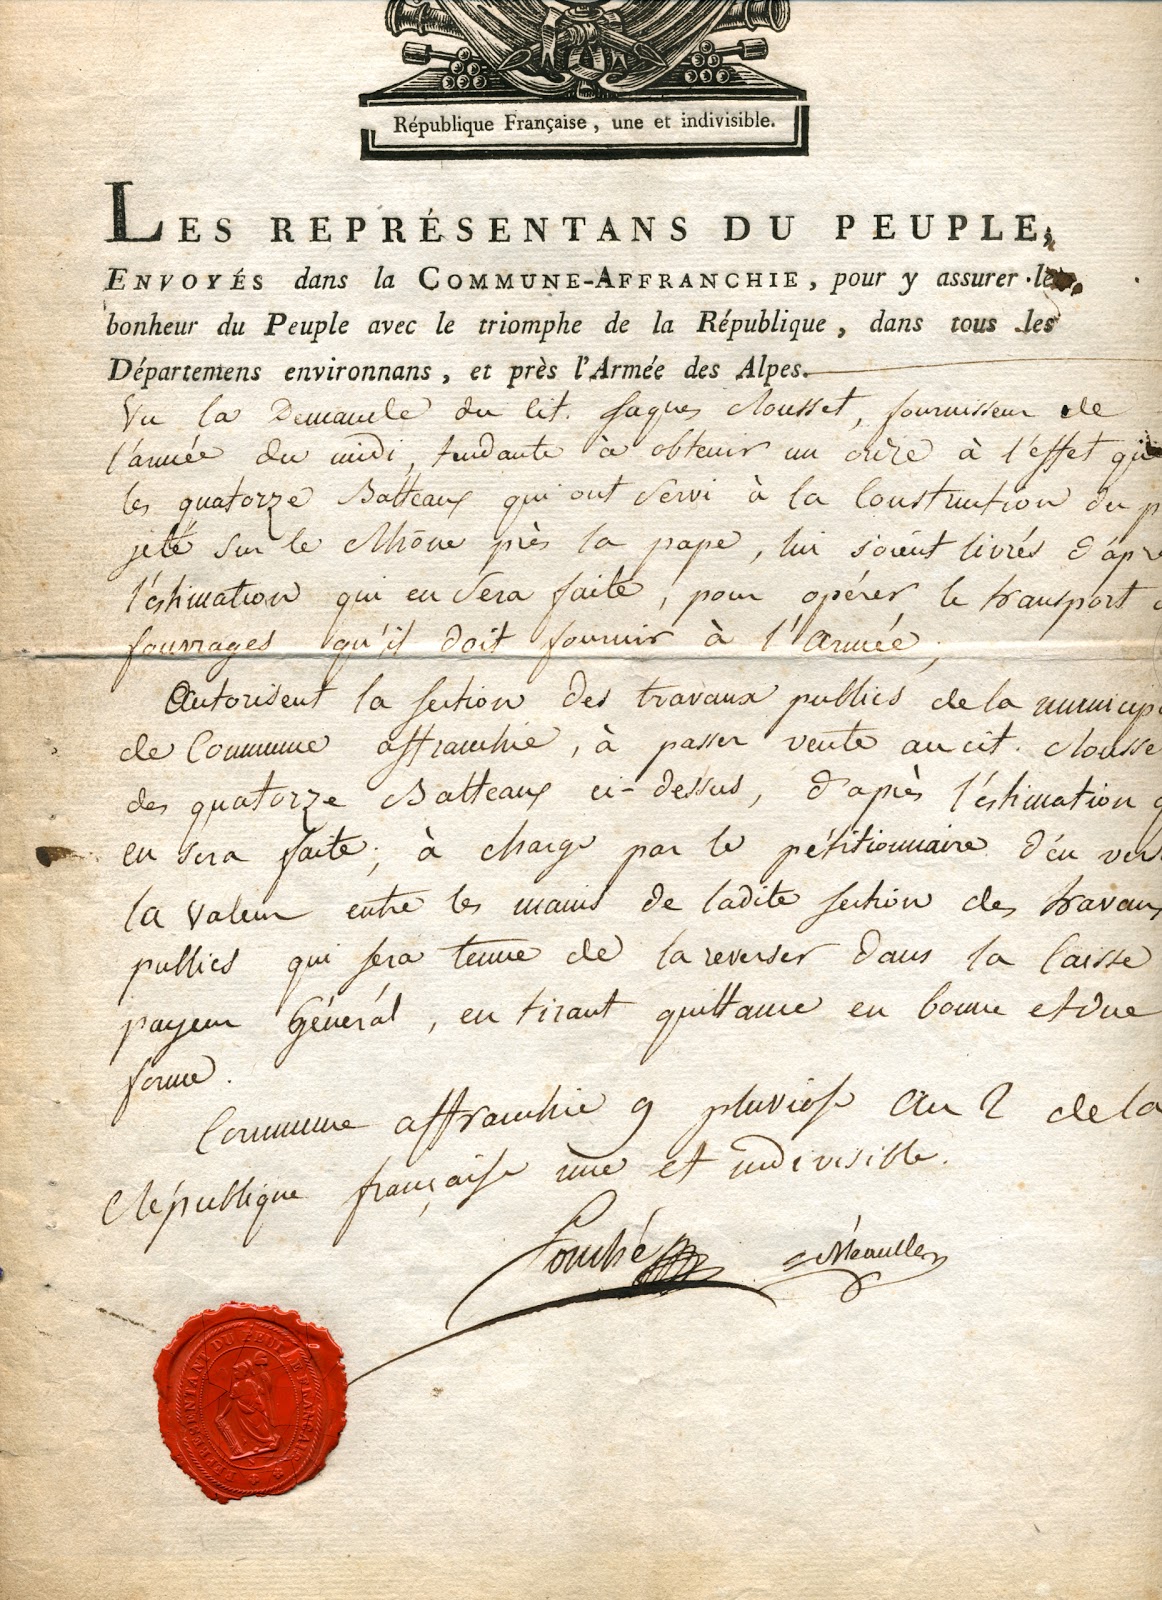 République Française, une et indivisible.
LES REPRÉSENTANS DU PEUPLE,
ENVOYÉS dans la COMMUNE-AFFRANCHIE, pour y assurer le
bonheur du Peuple avec le triomphe de la République, dans tous les
Départemens environnans, et près l'Armée des Alpes.
Vu la Demande du Cit. Jaques Rousset, fournisseur de
l'armée du midi, tendante à obtenir un ordre à l'effet que
les quatorze Batteaux qui ont Servi à la Construction du p
jeté Sur le Rhône près la pape, lui soient livrés d'apr
l'estimation qui en Sera faite, pour opérer le transport d
fourrages qu'il doit fournir à l'Armée;
Autorisent la Section des travaux publics de la municip
de Commune affranchie, à passer vente au cit. Rousse
des quatorze Batteaux ci-dessus, d'après l'estimation q
en sera faite; à charge par le pétitionnaire d'en vers
la Valeur entre les mains de ladite Section des travaux
publics qui sera tenue de la reverser dans la Caisse
payeur Général, en tirant quittance en bonne et due
forme.
Commune affranchie 9 pluviose an 2 de la
République française une et indivisible.
Fouché Méaulle
REPRÉSENTANT DU PEUPLE FRANÇAIS